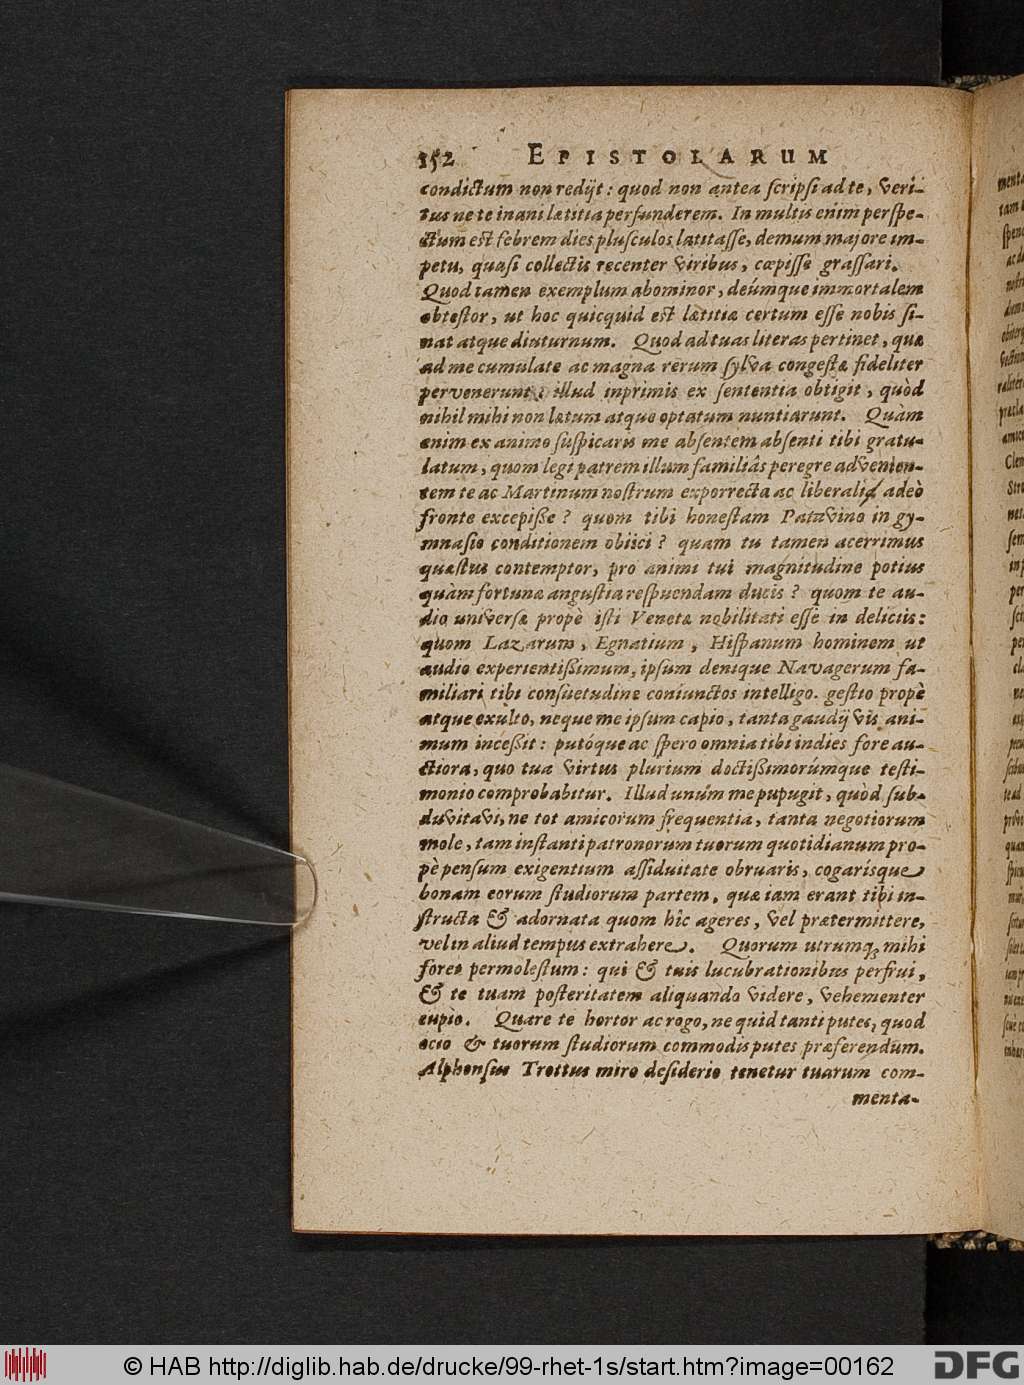 152 EPISTOLARUM
condictum non redijt: quod non antea scripsi ad te, veri-
tus ne te inani lætitia perfunderem. In multis enim perspe-
ctum est febrem dies plusculos latitasse, demum majore im-
petu, quasi collectis recenter viribus, cœpisse grassari.
Quod tamen exemplum abominor, deúmque immortalem
obtestor, ut hoc quicquid est lætitiæ certum esse nobis si-
nat atque diuturnum. Quod ad tuas literas pertinet, quæ
ad me cumulate ac magna rerum sylva congestæ fideliter
pervenerunt, illud inprimis ex sententia obtigit, quòd
nihil mihi non lætum atque optatum nuntiarunt. Quàm
enim ex animo suspicaris me absentem absenti tibi gratu-
latum, quom legi patrem illum familiâs peregre advenien-
tem te ac Martinum nostrum exporrecta ac liberali adeò
fronte excepiße? quom tibi honestam Patavino in gy-
mnasio conditionem obiici? quam tu tamen acerrimus
quæstus contemptor, pro animi tui magnitudine potius
quàm fortunæ angustia respuendam ducis? quom te au-
dio universæ propè isti Venetæ nobilitati esse in deliciis:
quom Lazarum, Egnatium, Hispanum hominem ut
audio experientißimum, ipsum denique Navagerum fa-
miliari tibi consuetudine coniunctos intelligo. gestio propè
atque exulto, neque me ipsum capio, tanta gaudij vis ani-
mum inceßit: putóque ac spero omnia tibi indies fore au-
ctiora, quo tua virtus plurium doctißimorúmque testi-
monio comprobabitur. Illud unum me pupugit, quòd sub-
duvitavi, ne tot amicorum frequentia, tanta negotiorum
mole, tam instanti patronorum tuorum quotidianum pro-
pè pensum exigentium assiduitate obruaris, cogarísque
bonam eorum studiorum partem, quæ iam erant tibi in-
structa & adornata quom hîc ageres, vel prætermittere,
vel in aliud tempus extrahere. Quorum utrumq; mihi
foret permolestum: qui & tuis lucubrationibus perfrui,
& te tuam posteritatem aliquando videre, vehementer
cupio. Quare te hortor ac rogo, ne quid tanti putes, quod
ocio & tuorum studiorum commodis putes præferendum.
Alphonsus Trottus miro desiderio tenetur tuarum com-
menta-
© HAB http://diglib.hab.de/drucke/99-rhet-1s/start.htm?image=00162
DFG